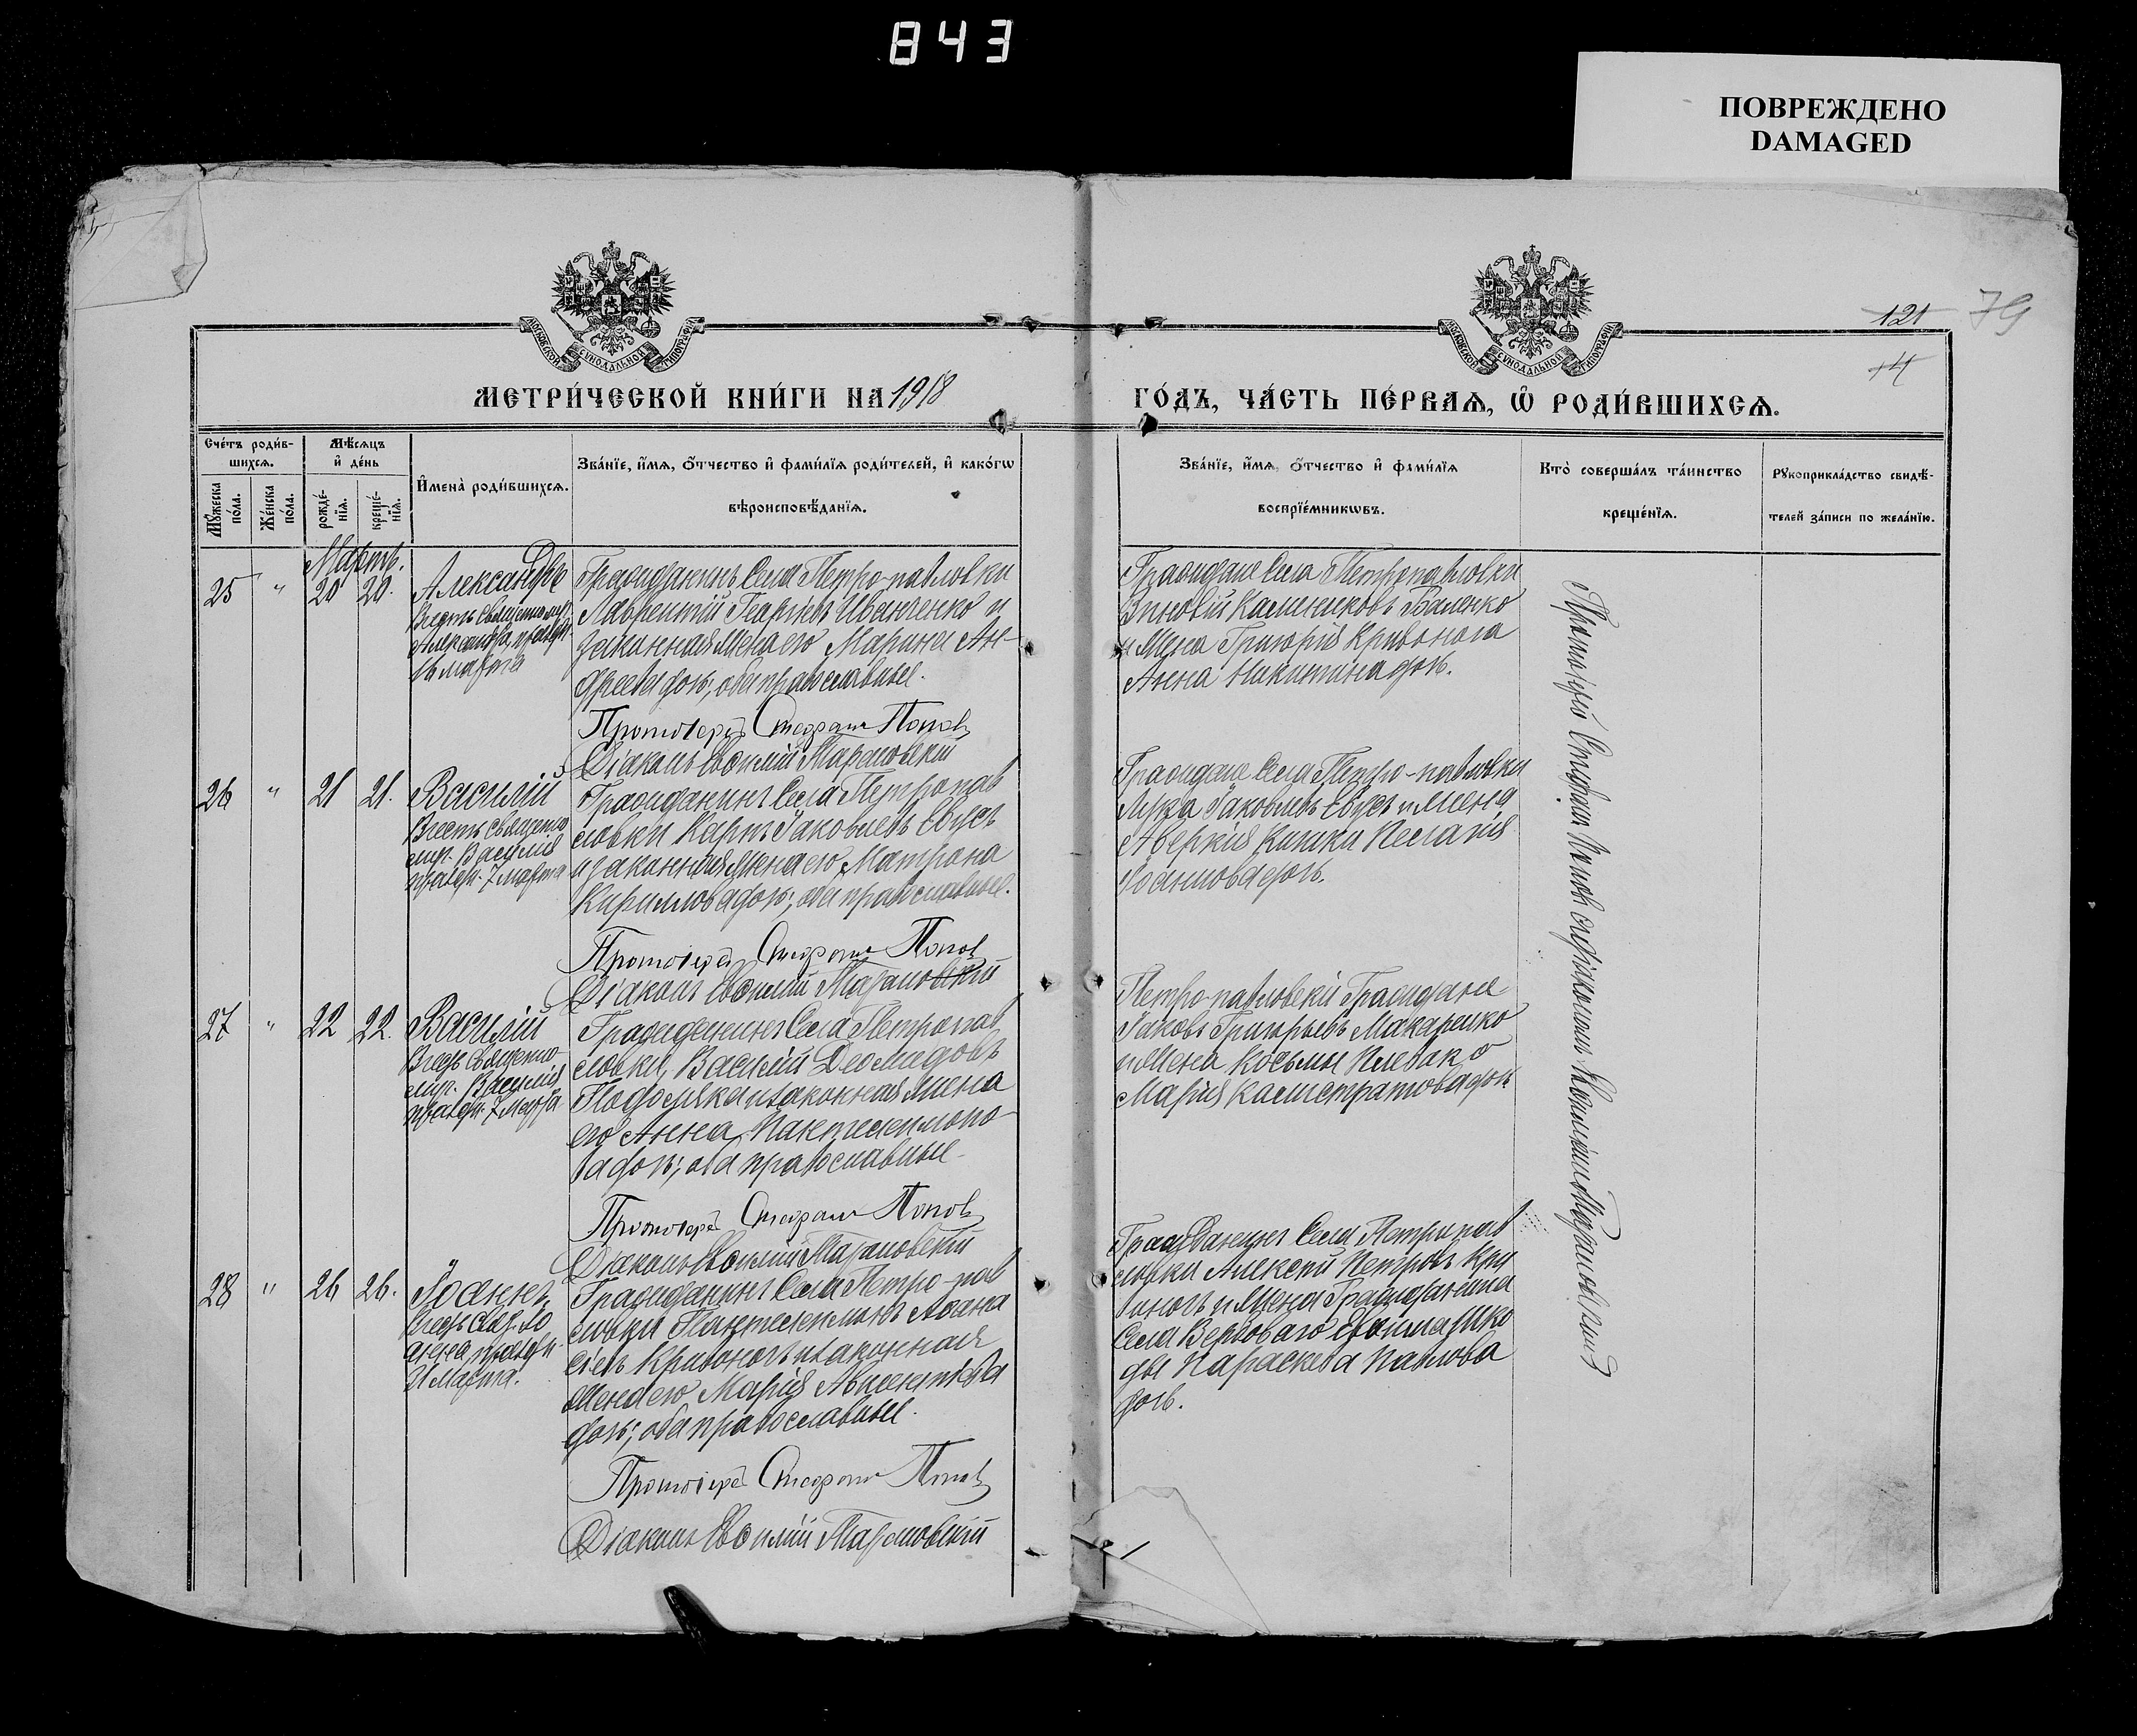 843
ПОВРЕЖДЕНО
DAMAGED
МОСКОВСКОЙ СѴНОДАЛЬНОЙ ТИПОГРАФІИ
МОСКОВСКОЙ СѴНОДАЛЬНОЙ ТИПОГРАФІИ
121 79
14
МЕТРИ́ЧЕСКОЙ КНИ́ГИ НА 1918
ГО́ДЪ, ЧА́СТЬ ПЕ́РВАѦ, Ѡ҆ РОДИ́ВШИХСѦ.
Сче́тъ роди́в-
шихсѧ.
Мꙋ́жеска по́ла.
Же́нска по́ла.
Мѣ́сѧцъ
и҆ де́нь
рожде́-
нїѧ.
креще́-
нїѧ.
И҆мена̀ роди́вшихсѧ.
Зва́нїе, и҆́мѧ, ѻ҆́тчество и҆ фами́лїѧ роди́телей, и҆ како́гѡ
вѣроисповѣ́данїѧ.
Зва́нїе, и҆́мѧ, ѻ҆́тчество и҆ фами́лїѧ
воспрїе́мникѡвъ.
Кто̀ соверша́лъ та́инство
креще́нїѧ.
Рꙋкоприкла́дство свидѣ́-
телей за́писи по жела́нїю.
Мартъ.
25 " 20 20. Александръ
Въ честь священномуч.
Александра, праздн.
марта
Гражданинъ Села Петро-павловки
Лаврентій Георгіевъ Иванченко и
законная жена его Марина Ан-
дреева дочь; оба православные.
Протоіерей Стефанъ Поповъ
Діаконъ Евѳимій Марановскій
Граждане Села Петропавловки
Зиновій Калиниковъ Баленко
и Жена Григорія Кривонога
Анна Никитина дочь.
26 " 21 21. Василій
Въ честь священно
муч. Василія
праздн. 7 марта
Гражданинъ Села Петропав
ловки Карпъ Іаковлевъ Евусъ
и законная жена его Матрона
Кириллова дочь; оба православные.
Протоіерей Стефанъ Поповъ
Діаконъ Евѳимій Марановскій
Граждане Села Петро-павловки
Лука Іаковлевъ Евусъ и Жена
Аверкія Кишки Пелагія
Іоаннова дочь.
27 " 22 22. Василій
Въ честь Священно-
муч. Василія
праздн. 7 Марта
Гражданинъ Села Петропав
ловки, Василій Деомидовъ
Подоляка и законная жена
его Анна Пантелеимоно-
ва дочь; оба православные
Протоіерей Стефанъ Поповъ
Діаконъ Евѳимій Марановскій
Петро-павловскіи Граждане
Іаковъ Григорьевъ Макаренко
и Жена Косьмы Плевако
Марія Калистратова дочь
28 " 26 26. Іоаннъ,
Въ честь
анна праздн.
Марта.
Гражданинъ Села Петро-пав
ловки Пантелеимонъ Аѳана
сіевъ Кривоногъ и законная
жена его Марія Авксентіева
дочь; оба православные.
Протоіерей Стефанъ Поповъ
Діаконъ Евѳимій Марановскій
Гражданинъ Села Петропав
ловки Алексѣй Петровъ Кри
воногъ и Жена Гражданина
Села Вербоваго Евѳима Шко
ды Параскева Павлова
дочь.
Протоіерей Стефанъ Поповъ съ діакономъ Евѳиміемъ Марановскимъ